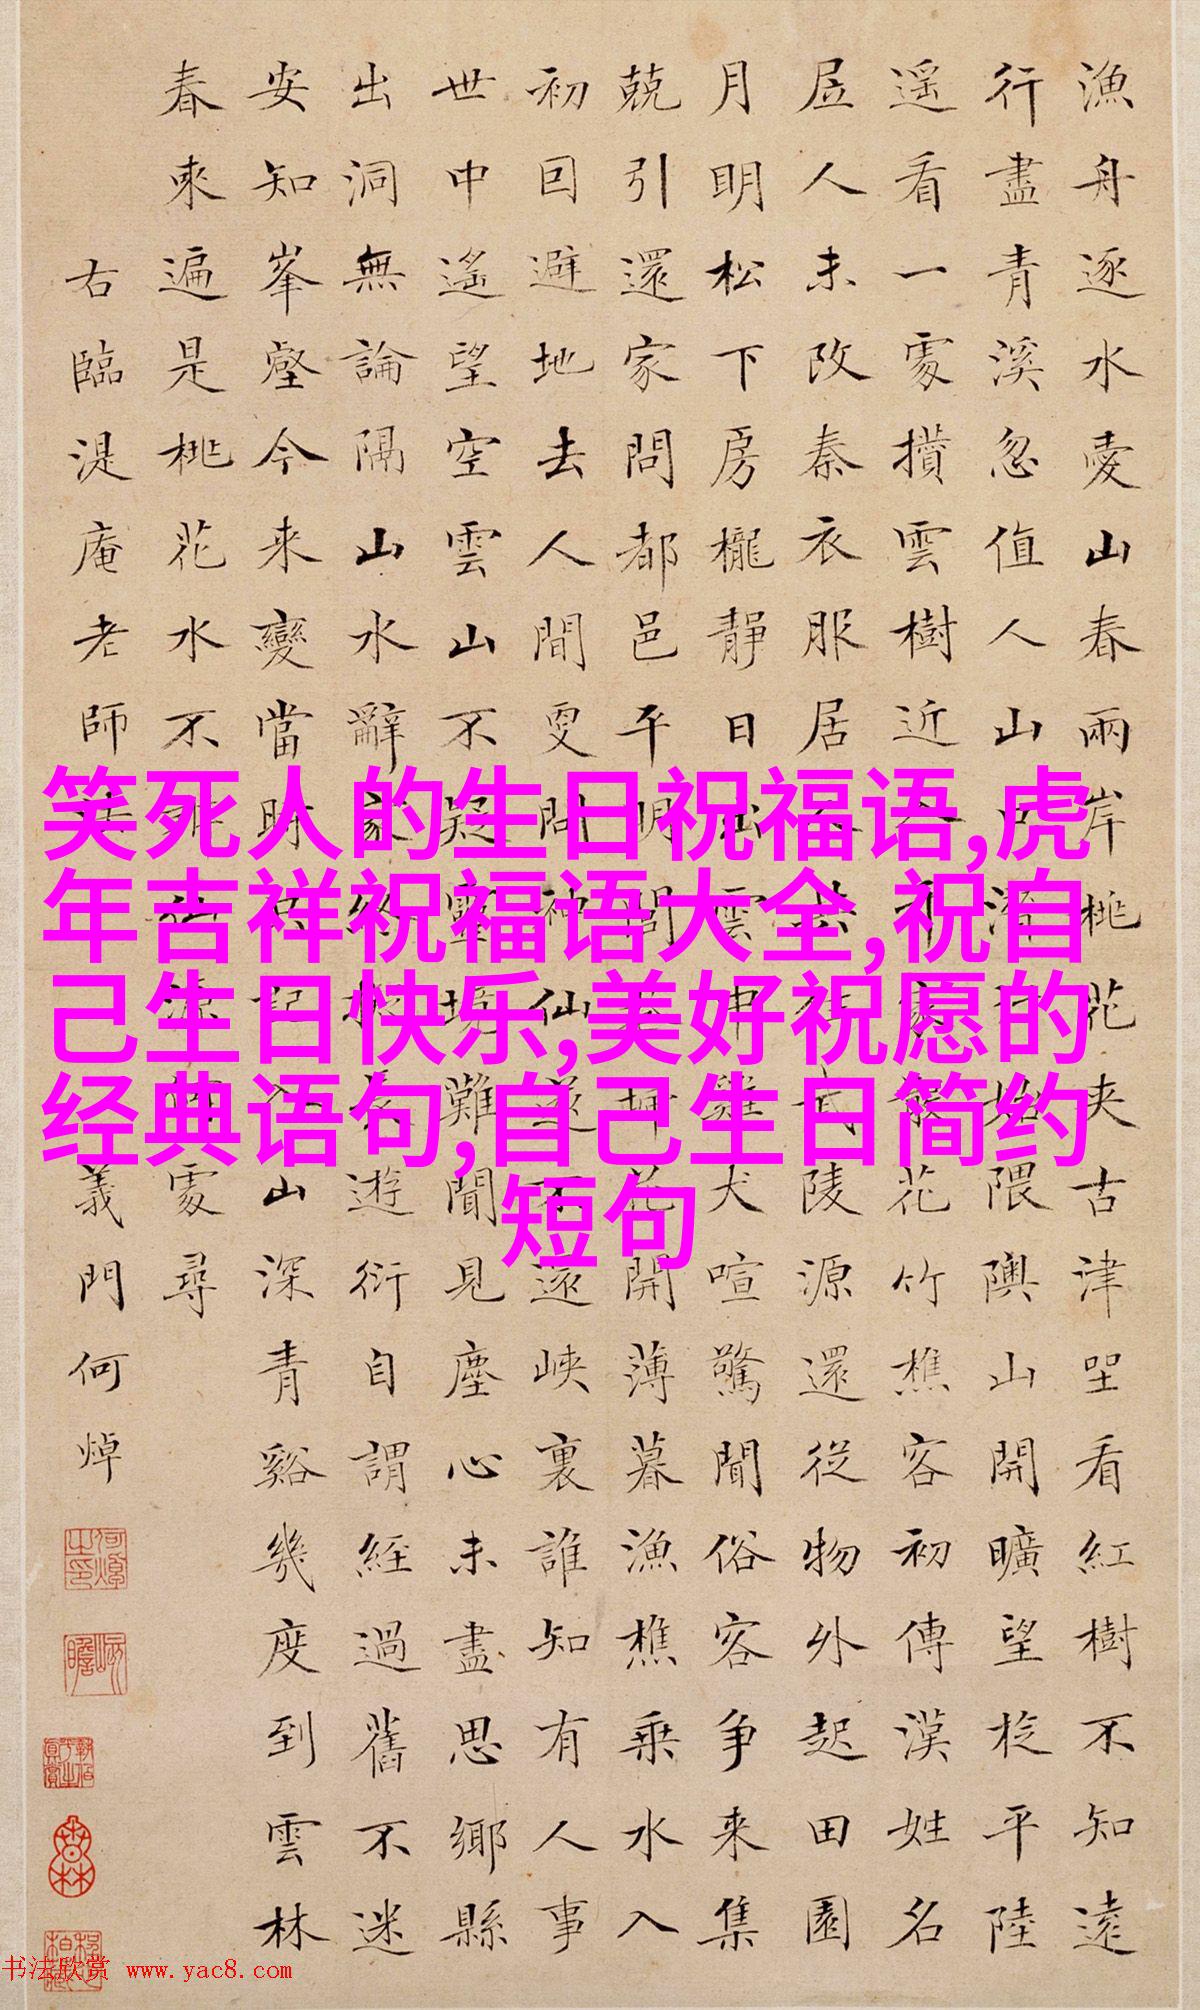 漁舟逐水愛山春兩岸桃花夾古津坐看紅樹不知遠
行盡青溪忽值人山口潛行始隈隩山開曠望旋平陸
遥看一處攢雲樹近入千家散花竹樵客初傳漢姓名
居人未改秦衣服居人共住武陵源還從物外起田園
月明松下房櫳靜日出雲中雞犬喧驚聞俗客爭来集
競引還家問都邑平明閭巷掃花開薄暮漁樵乘水入
初因避地去人間更問神仙遂不還峽裏誰知有人事
世中遙望空雲山不疑靈境難聞見塵心未盡思鄉縣
出洞無論隔山水辭家終擬長遊衍自謂經過舊不迷
安知峯壑今来變當時只記入山深青谿幾度到雲林
春來遍是桃花水不辨仙源何處尋
右臨湜庵老師義門何焯
笑死人的生日祝福语,虎
年吉祥祝福语大全,祝自
己生日快乐,美好祝愿的
经典语句,自己生日简约
短句
书法欣赏 www.yac8.com